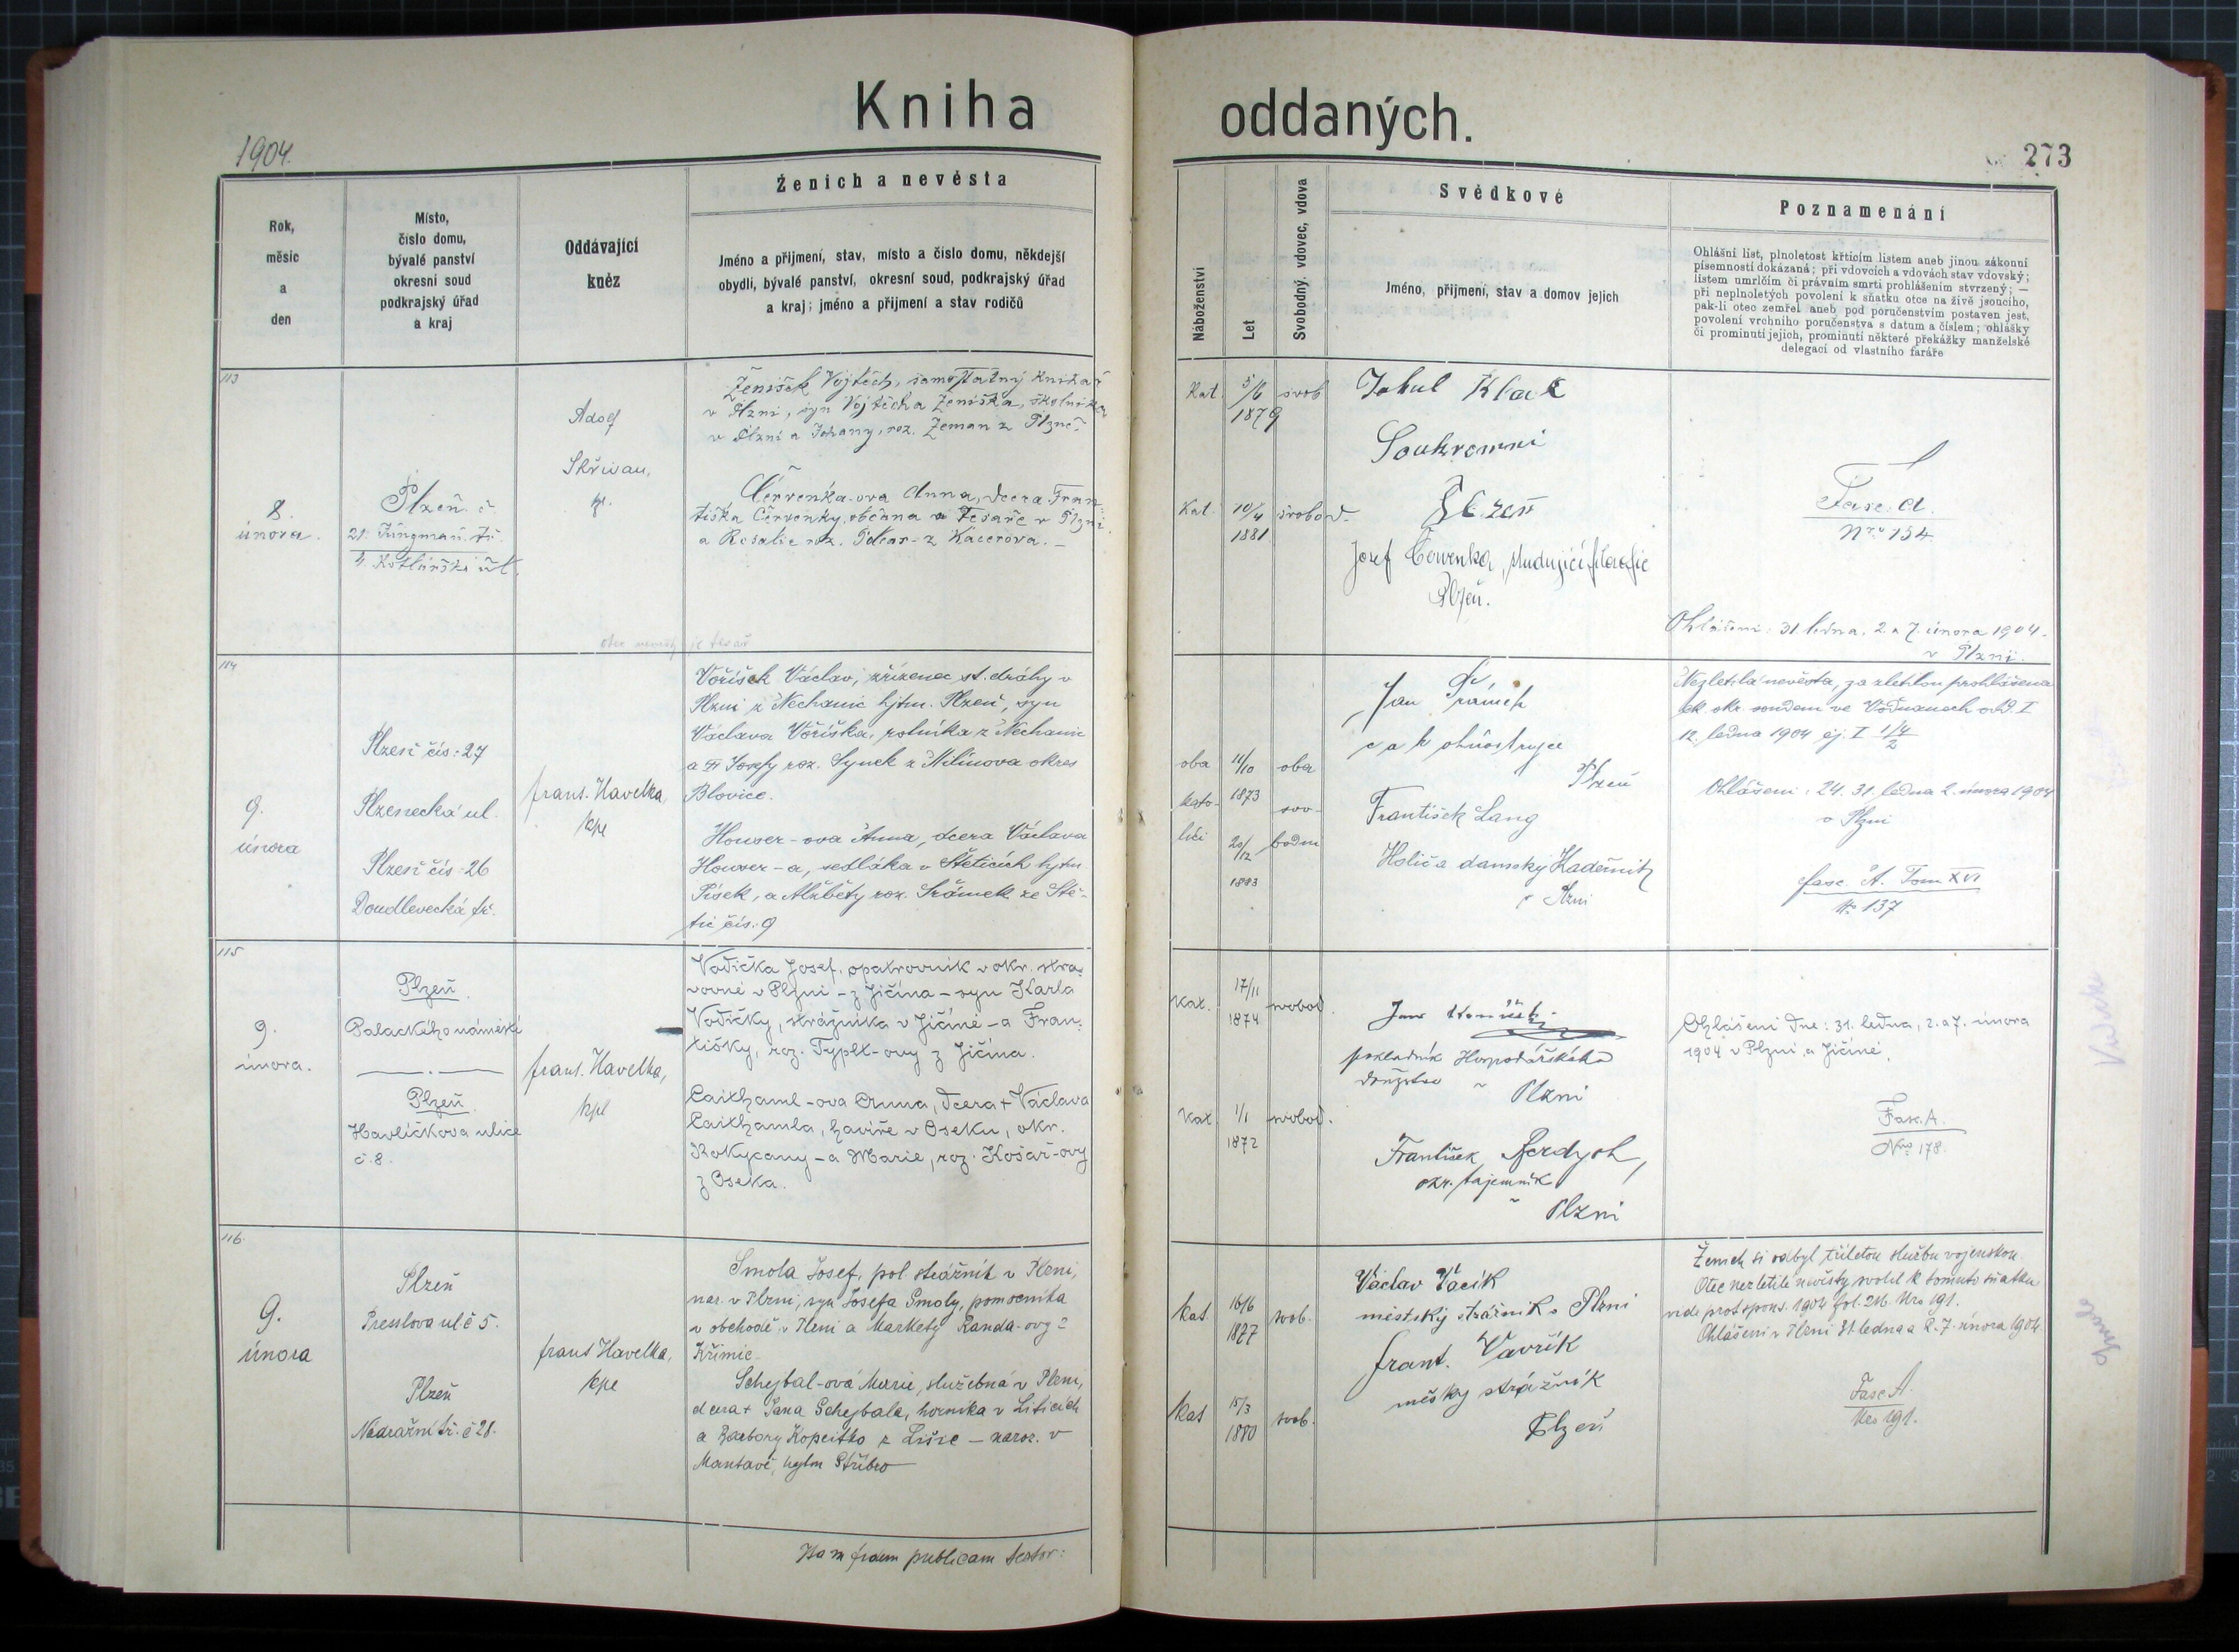 Kniha
oddaných.
1904.
273
Rok,
měsíc
a
den
Místo,
číslo domu,
bývalé panství
okresní soud
podkrajský úřad
a kraj
Oddávající
kněz
Ženich a nevěsta
Jméno a přijmení, stav, místo a číslo domu, někdejší
obydlí, bývalé panství, okresní soud, podkrajský úřad
a kraj; jméno a přijmení a stav rodičů
Náboženství
Let
Svobodný, vdovec, vdova
Svědkové
Jméno, přijmení, stav a domov jejich
Poznamenání
Ohlášní list, plnoletost křticím listem aneb jinou zákonní
písemností dokázaná; při vdovcích a vdovách stav vdovský;
listem umrlčím či právním smrti prohlášením stvrzený; —
při neplnoletých povolení k sňatku otce na živě jsoucího,
pak-li otec zemřel aneb pod poručenstvím postaven jest,
povolení vrchního poručenstva s datum a číslem; ohlášky
či prominutí jejich, prominutí některé překážky manželské
delegací od vlastního faráře
113
8.
února.
Plzeň. č.
21. Jungman. tř.
4.
Adolf
Skřivan,
kpl.
Ženíšek Vojtěch, samostatný knihař
v Plzni, syn Vojtěcha Ženíška, školníka
v Plzni a Johany, roz. Zeman z Plzně.
Červenka-ova Anna, dcera Fran-
tiška Červenky, občana a tesaře v Plzni
a Rosalie roz. z Kaceřova. —
Kat. 5/6 svob
1879
Kat. 10/4 svobod.
1881
Soukromní
Plzeň
Josef Červenka, studující filosofie
Plzeň.
Fasc. A.
Nro 154
Ohlášeni: 31 ledna, 2. a 7. února 1904.
v Plzni.
114
9.
února
Plzeň čís: 27
Plzenecká ul.
Plzeň čís: 26
Doudlevecká tř.
frant. Havelka,
kpl
Voříšek Václav, zřízenec st. dráhy v
Plzni z Nechanic hjtm. Plzeň, syn
Václava Voříška, rolníka z Nechanic
a Josefy roz. Synek z Milínova okres
Blovice.
Houser-ova Anna, dcera Václava
Houser-a, sedláka v Štěticích hjtm
Písek, a Alžběty roz. Šrámek ze Ště-
tic čís. 9
oba 11/10 oba
kato- 1873 svo-
líci 20/12 bodni
1883
Jan Šrámek
c a k ohňostrujce
Plzeň
František Lang
Holič a damský Kadeřník
v Plzni
Nezletilá nevěsta, za zletilou prohlášena
ck. okr. soudem ve Vodňanech odd. I
12. ledna 1904 čj. I 1/4
2
Ohlášeni: 24. 31. ledna 2. února 1904
v Plzni
fasc. A. Tom XVI
No 137
115
9.
února.
Plzeň
Palackého náměstí
Plzeň
Havlíčkova ulice
č. 8.
frant. Havelka,
kpl
Vodička Josef, opatrovník v okr. stra-
vovně v Plzni – z Jičína – syn Karla
Vodičky, strážníka v Jičíně – a Fran-
tišky, roz. Typlt-ovy z Jičína.
Laixhaml-ova Anna, dcera + Václava
Laixhamla, havíře v Oseku, okr.
Rokycany – a Marie, roz. Košař-ovy
z Oseka.
Kat. 17/11 svobod.
1874
Kat. 1/1 svobod.
1872
Jan
pokladník Hospodářského
družstva v
Plzni
František Berdych,
okr. tajemník
v Plzni
Ohlášeni dne: 31. ledna, 2. a 7. února
1904 v Plzni a Jičíně.
Fasc. A.
Nro 178.
116
9.
února
Plzeň
Presslova ul č 5.
Plzeň
Nádražní tř. č 28.
frant Havelka,
kpl
Smola Josef, pol. strážník v Plzni,
nar. v Plzni, syn Josefa Smoly, pomocníka
v obchodě v Plzni a Markety Randa-ovy z
Křimic.
Schejbal-ová Marie, služebná v Plzni,
dcera + Jana Schejbala, horníka v Liticích
a Barbory z – naroz. v
Mantově, hejtm Stříbro
kat. 16/6 svob.
1877
kat 15/3 svob.
1880
Václav Vacík
městský strážník v Plzni
frant. Vavřík
měský strážník
Plzeň
Ženich si odbyl tříletou službu vojenskou.
Otec nezletilé nevěsty svolil k tomuto sňatku
vide prot spons. 1904 fol. 216. Nro 191.
Ohlášeni v Plzni 31 ledna a 2. 7. února 1904
Fasc A.
Nro 191.
Smola
fidem publicam testor: